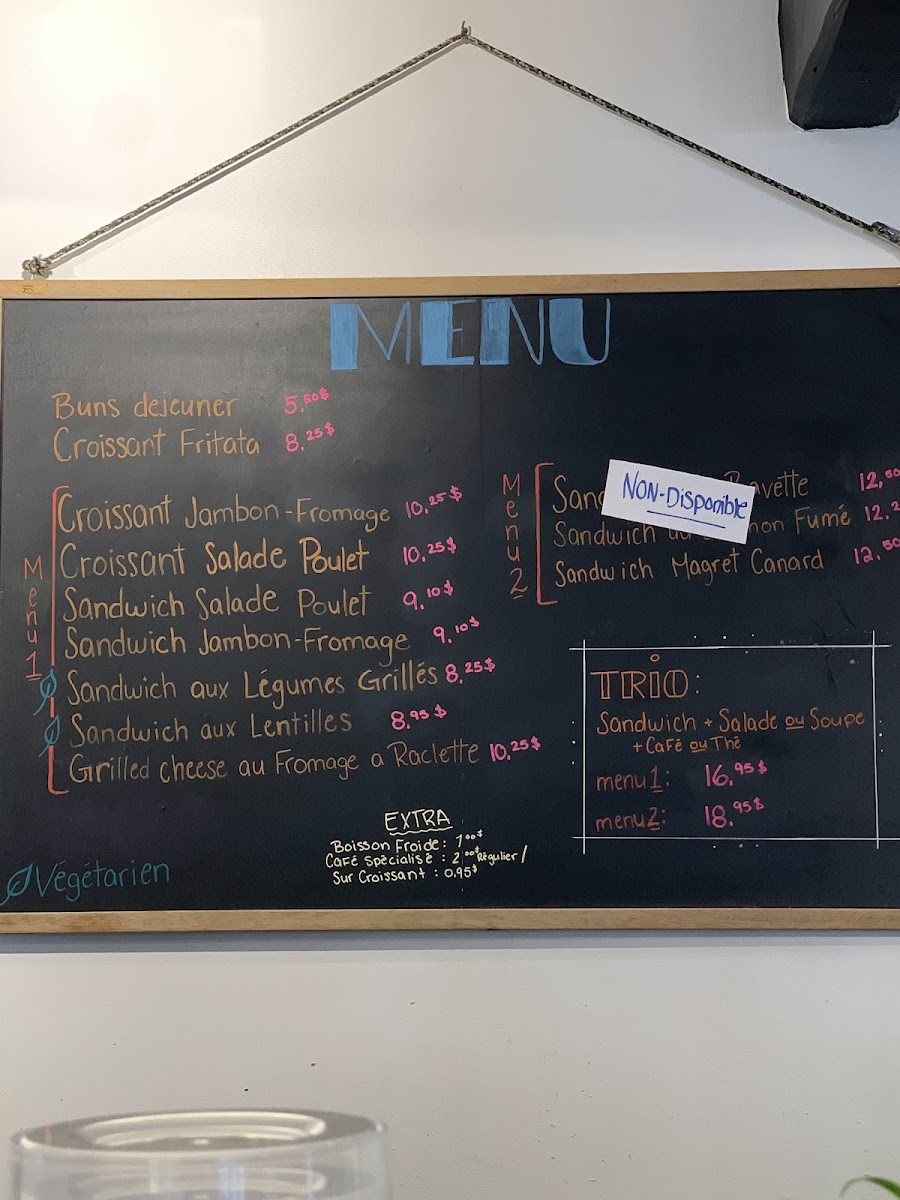 MENU
Buns dejeuner 5,50$
Croissant Fritata 8,25$
Menu 1
Croissant Jambon-Fromage 10,25$
Croissant Salade Poulet 10,25$
Sandwich Salade Poulet 9,10$
Sandwich Jambon-Fromage 9,10$
Sandwich aux Légumes Grillés 8,25$
Sandwich aux Lentilles 8,95$
Grilled cheese au Fromage a Raclette 10,25$
Végétarien
EXTRA
Boisson Froide: 1,00$
Café Spécialisé: 2,00$ Régulier/
Sur Croissant: 0,95$
Menu 2
NON-Disponible
12,50
Sandwich Fumé 12,2
Sandwich Magret Canard 12,50
TRIO:
Sandwich + Salade ou Soupe
+ Café ou Thé
menu 1: 16,95$
menu 2: 18,95$